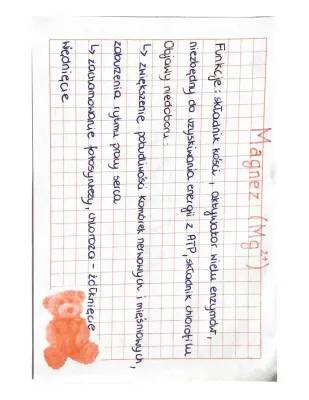 Magnez (Mg²⁺)
Funkcje: składnik kości, aktywator wielu enzymów,
niezbędny do uzyskiwania energii z ATP, składnik chlorofilu
Objawy niedoboru:
↳ zwiększenie pobudliwości komórek nerwowych i mięśniowych,
zaburzenia rytmu pracy serca
↳ zahamowanie fotosyntezy, chloroza - żółknięcie
więdnięcie